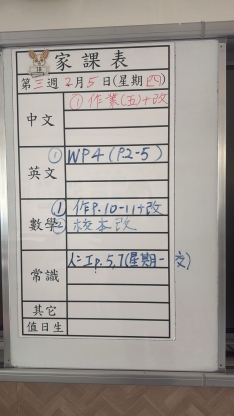 家課表
第三週2月5日(星期四)
中文 ①作業(五)+改
英文 ① WP4(P2-5)
數學 ①作P.10-11+改
②校本改
常識 P.5,7(星期一交)
其它
值日生